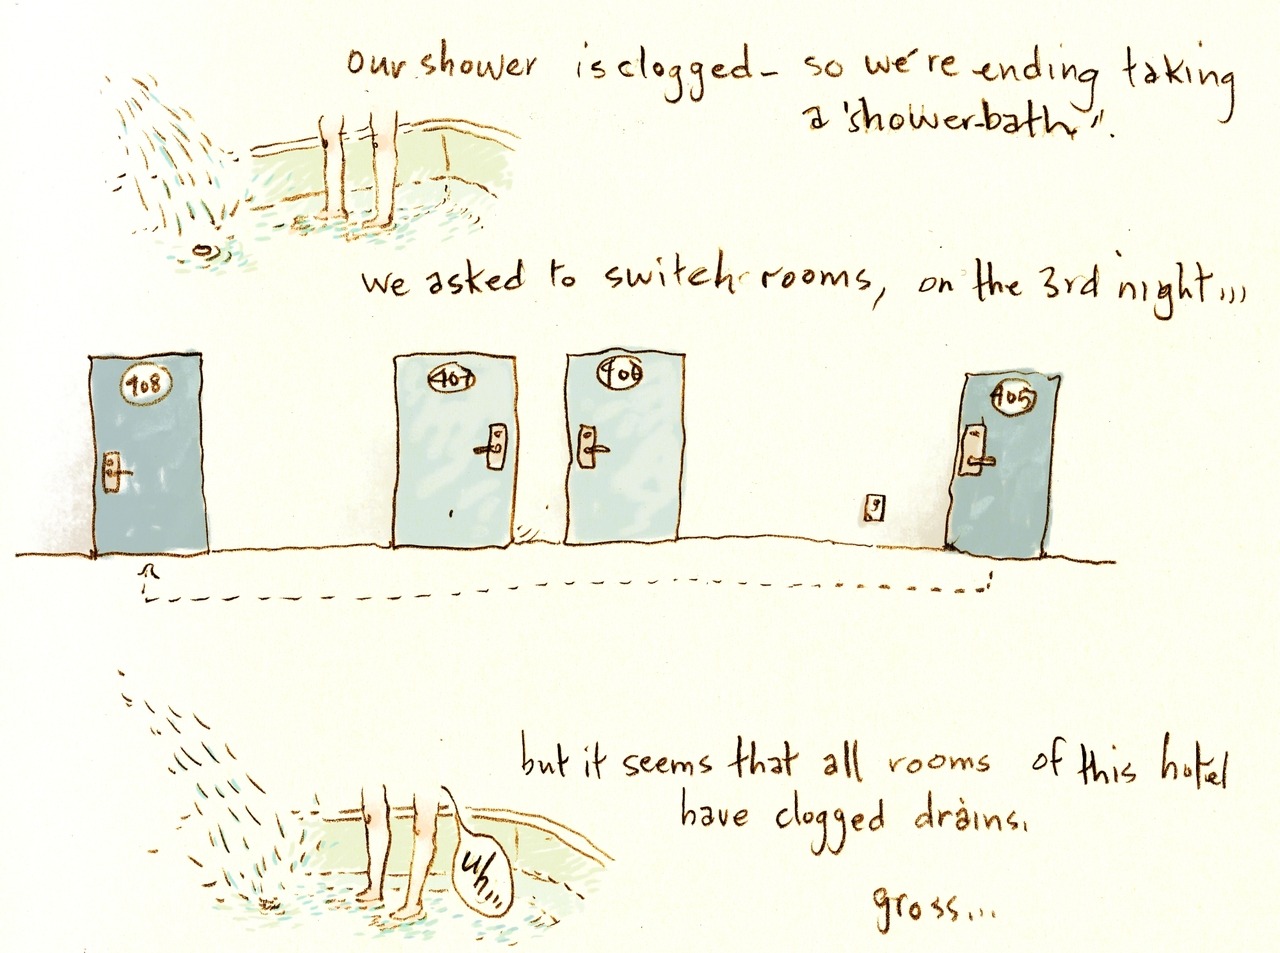 our shower is clogged- so we're ending taking
a 'shower-bath".
we asked to switch rooms, on the 3rd night,,,
408
407
406
405
but it seems that all rooms of this hotel
have clogged drains.
uh,,,
gross...